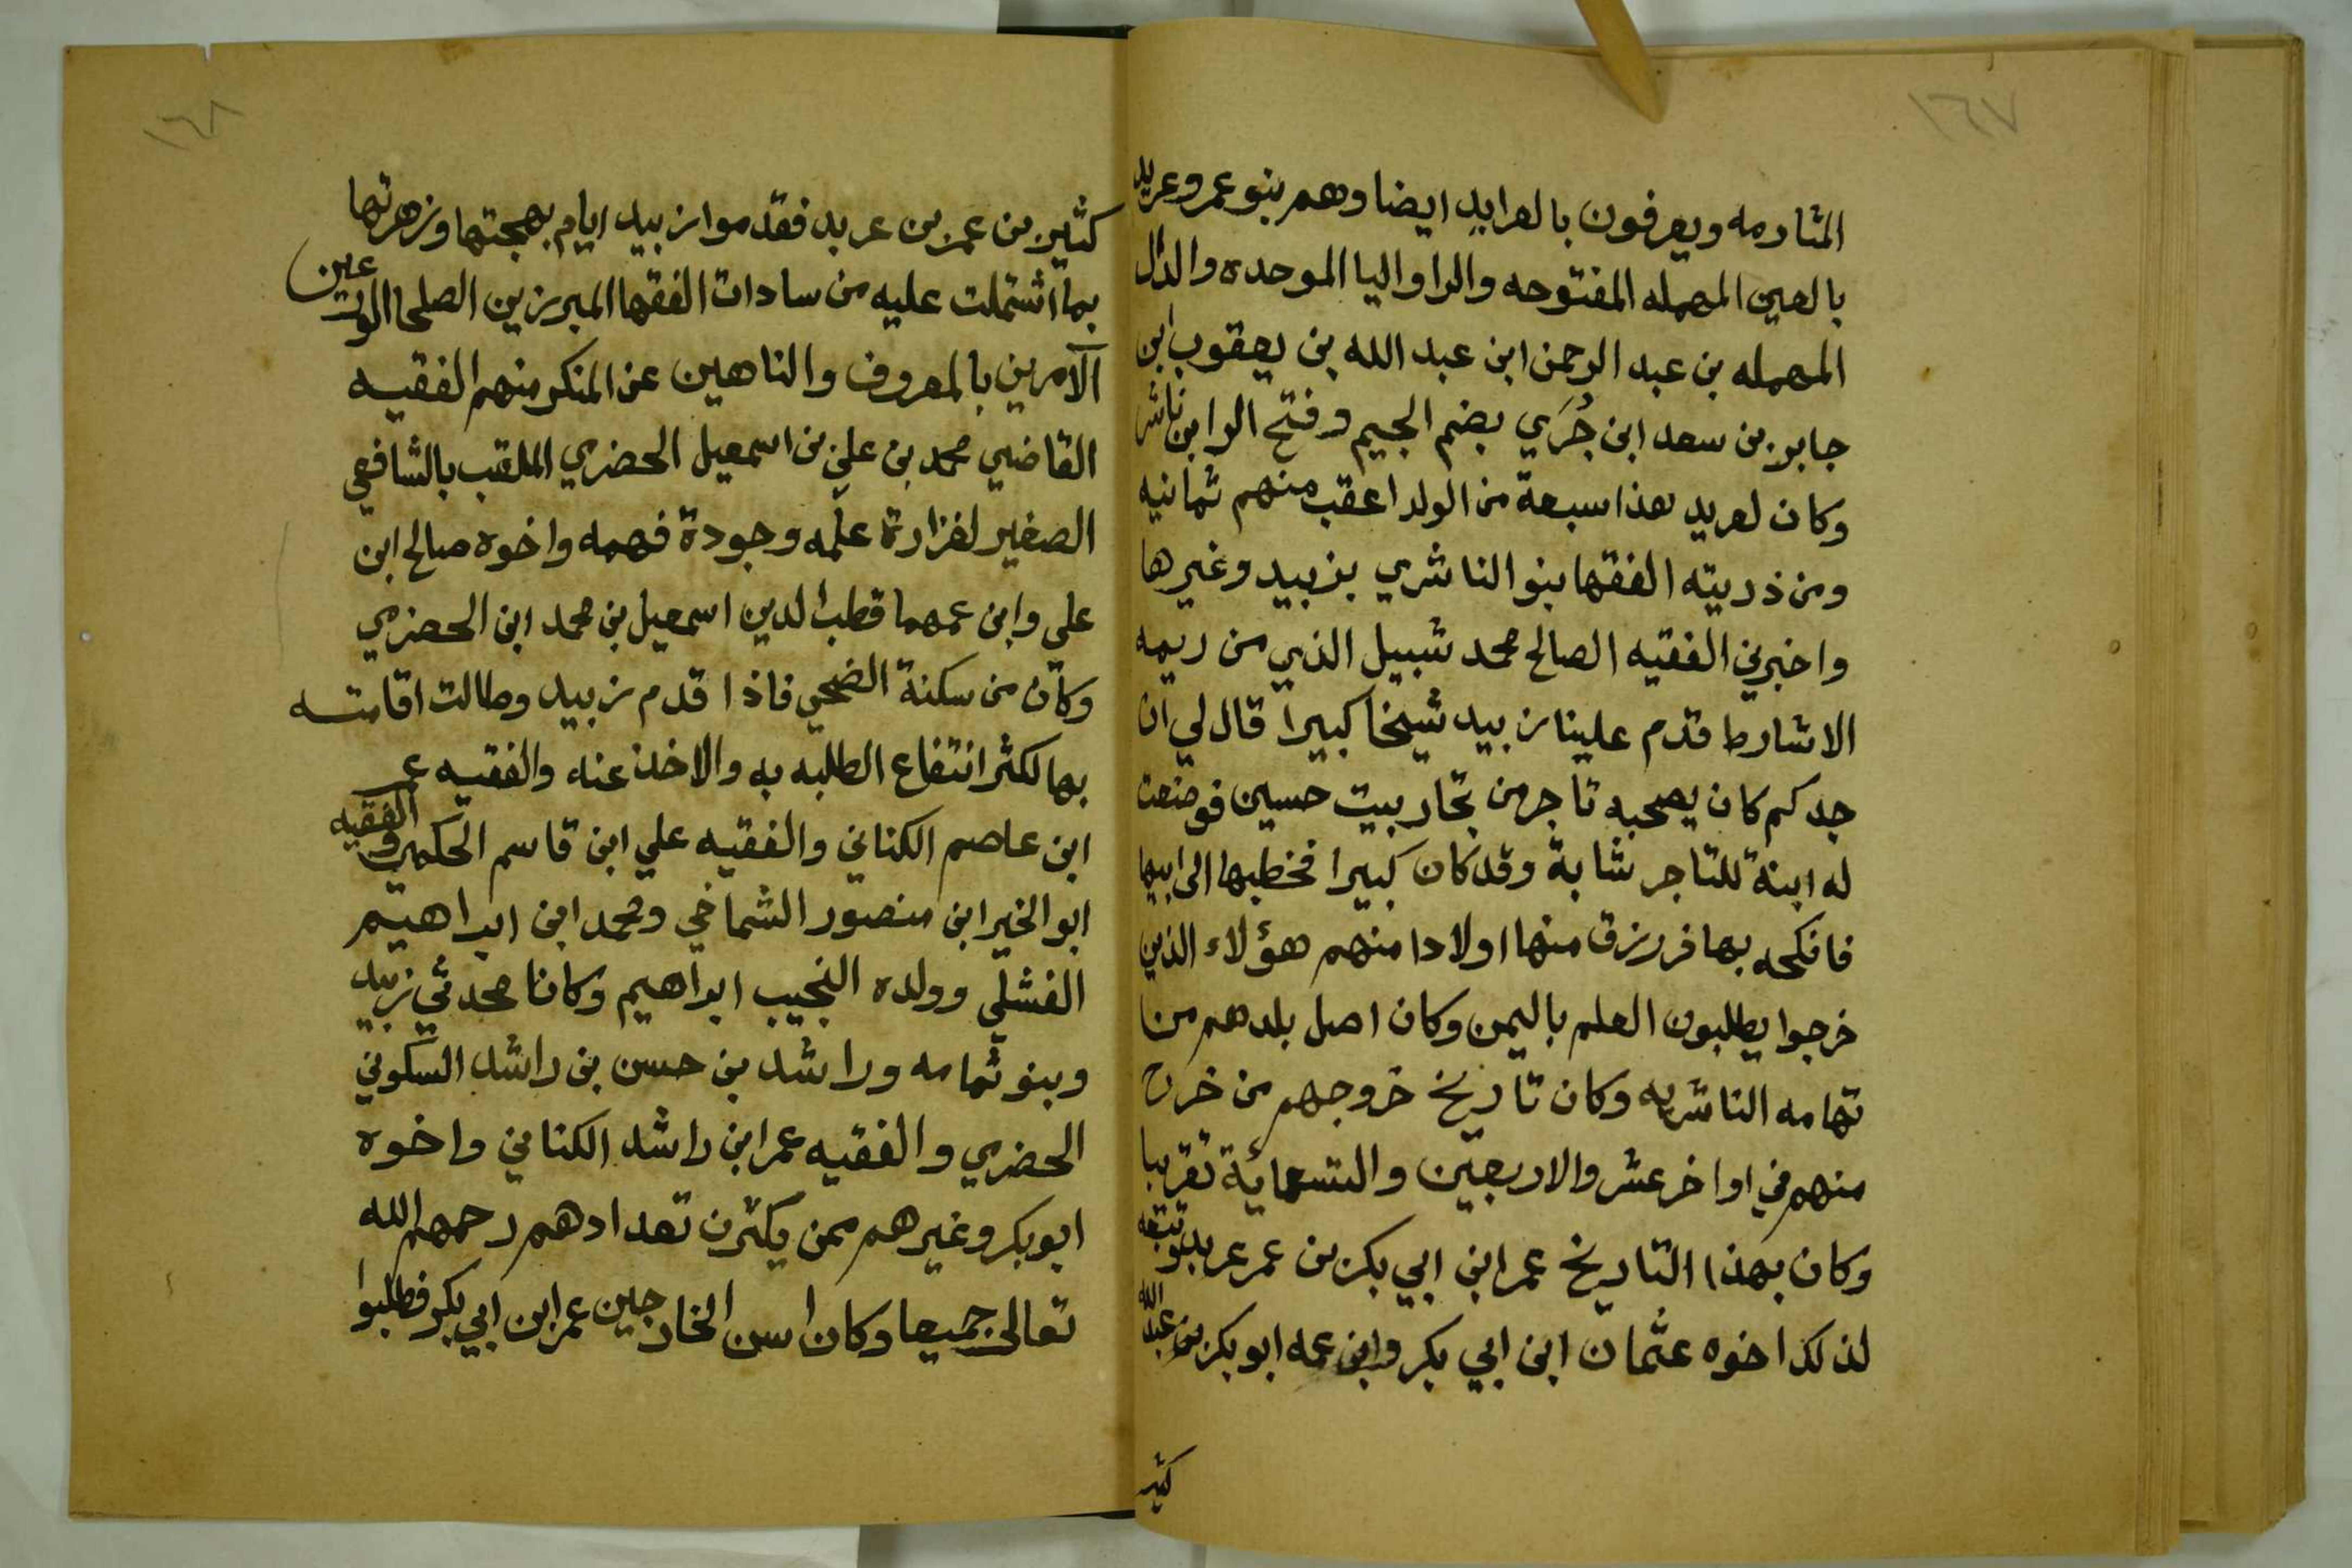 ١٦٧
المثارمه ويعرفون بالعرابد ايضا وهم بنو عمرو عربد
بالعين المهمله المفتوحه والرا واليا الموحده والدال
المهمله بن عبد الرحمن ابن عبد الله بن يعقوب ابن
جابر بن سعد ابن جُرَي بضم الجيم وفتح الرا ابن ناشر
وكان لعربد هذا سبعة من الولد اعقب منهم ثمانيه
ومن ذريته الفقها بنو الناشري بزبيد وغيرها
واخبرني الفقيه الصالح محمد شبيل الذي من ريمه
الاشارط قدم علينا زبيد شيخا كبيرا قال لي ان
جدكم كان يصحبه تاجر من تجار بيت حسين فوضعت
له ابنة للتاجر شابة وقد كان كبيرا فخطبها الى ابيها
فانكحه بها فررزق منها اولادا منهم هؤلاء الذين
خرجوا يطلبون العلم باليمن وكان اصل بلدهم من
تهامه الناشريه وكان تاريخ خروجهم من خرج
منهم في اواخر عشر والاربعين والتسعمائة تقريبا
وكان بهذا التاريخ عمر ابن ابي بكر بن عمر عربد وتبعه
لذلك اخوه عثمان ابن ابي بكر وابن عمه ابو بكر بن عبد الله
كثير
١٦٨
كثير بن عمر بن عربد فقدموا زبيد ايام بهجتها وزهرتها
بما اشتملت عليه من سادات الفقها المبرزين الصلحا الورعين
الآمرين بالمعروف والناهين عن المنكر منهم الفقيه
القاضي محمد بن علي بن اسمعيل الحضري الملقب بالشافعي
الصغير لغزارة علمه وجودة فهمه واخوه صالح ابن
علي وابن عمهما قطب الدين اسمعيل بن محمد ابن الحضرمي
وكان من سكنة الضحي فاذا قدم زبيد وطالت اقامته
بها لكثر انتفاع الطلبه به والاخذ عنه والفقيه عمر
ابن عاصم الكناني والفقيه علي ابن قاسم الحكمي والفقيه
ابو الخير ابن منصور الشماخي ومحمد ابن ابراهيم
الفشلي وولده النجيب ابراهيم وكانا محدثي زبيد
وبنو ثمامه وراشد بن حسن بن راشد السكوني
الحضري والفقيه عمر ابن راشد الكناني واخوه
ابو بكر وغيرهم ممن يكثرن تعدادهم رحمهم الله
تعالى جميعا وكان اسن الخارجين عمر ابن ابي بكر فطلبوا